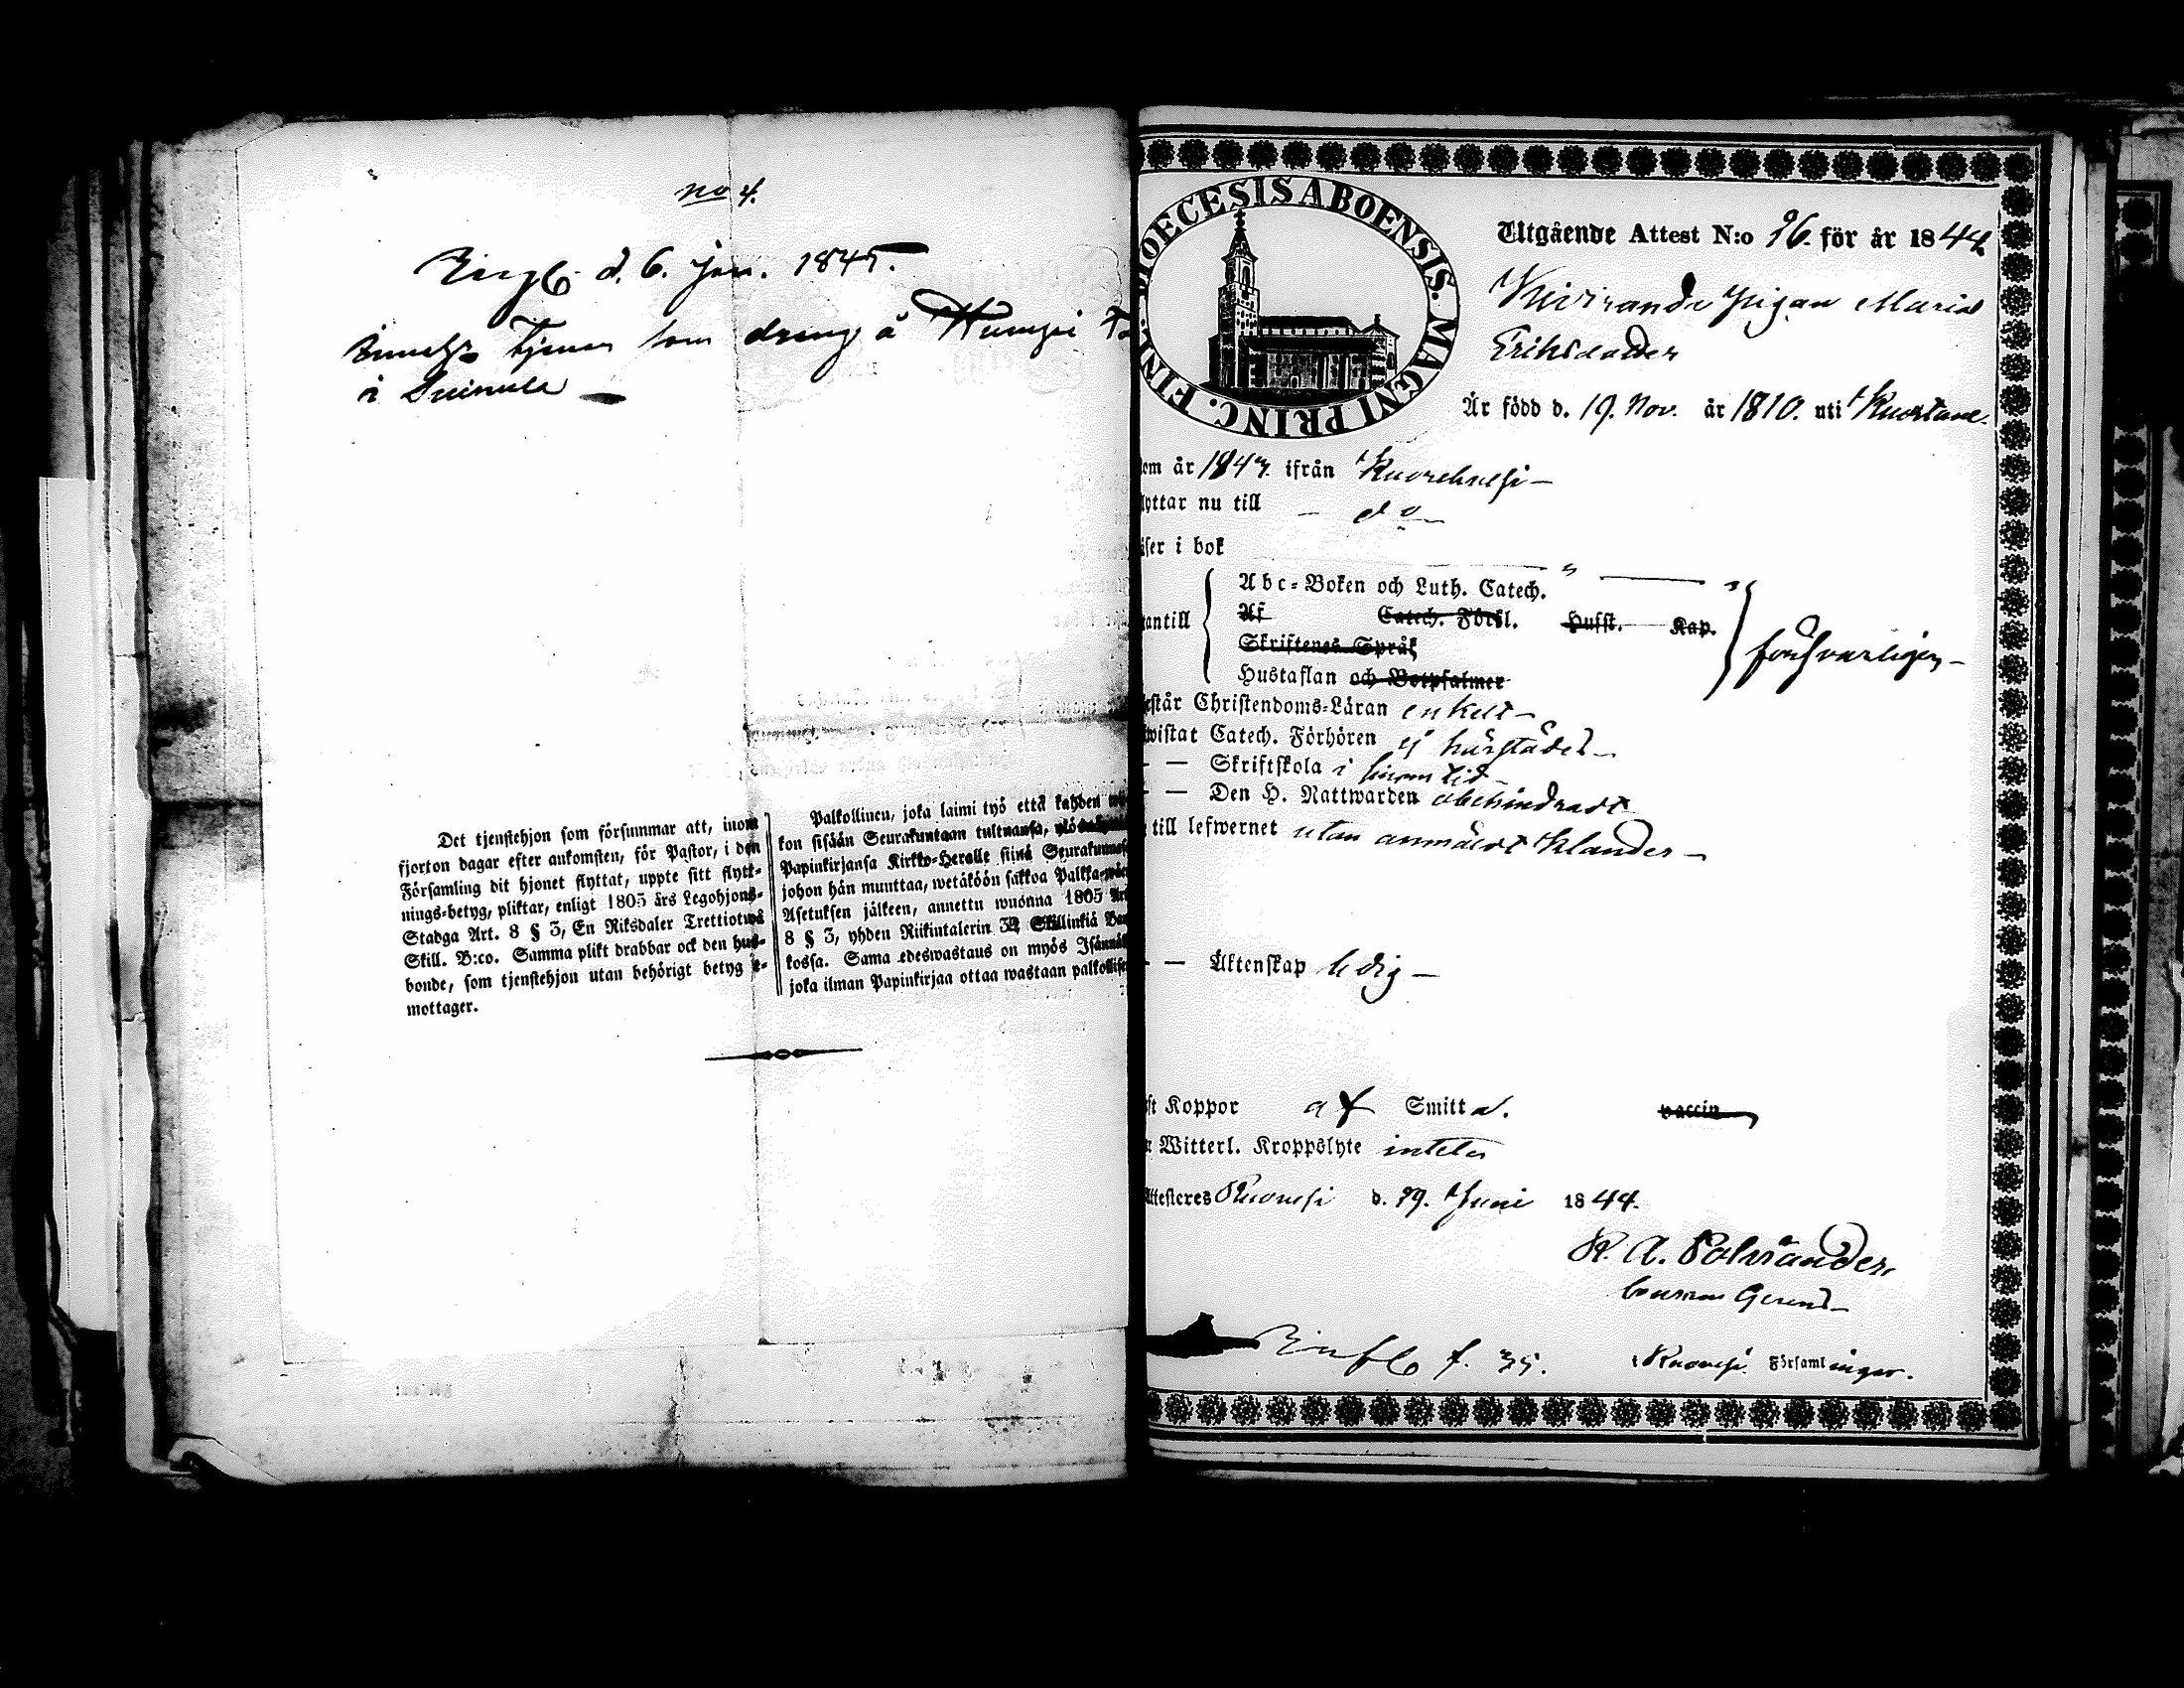 no 4.
d. 6. Jan. 1845.
tjener som dreng å
i
Det tjenstehjon som försummar att, inom
fjorton dagar efter ankomsten, för Pastor, i den
Församling dit hjonet flyttat, uppte sitt flytt-
nings-betyg, pliktar, enligt 1805 års Legohjons-
Stadga Art. 8 § 3, En Riksdaler Trettiotwå
Skill. B:co. Samma plikt drabbar ock den hus-
bonde, som tjenstehjon utan behörigt betyg e-
mottager.
Palkollinen, joka laimi työ että kahden
kon sisään Seurakuntaan tultuansa,
Papinkirjansa Kirkko-Heralle siinä
johon hän muuttaa, wetäköön sakkoa
Asetuksen jälkeen, annettu wuonna 1805
8 § 3, yhden Riikintalerin 32 Skillinkiä
kossa. Sama edeswastaus on myös
joka ilman Papinkirjaa ottaa wastaan
DIOECESIS ABOENSIS. MAGNI PRINC. FINL.
Utgående Attest N:o 96. för år 1844
Pigan Maria
Eriksdotter
Är född d. 19. Nov. år 1810. uti Kuortane.
om år 1843. ifrån
lyttar nu till — do
äser i bok
Abc-Boken och Luth. Catech.
antill Af Catech. Försl. Husst. Kap.
Skriftenes Språk
försvarligen —
Hustaflan och Botpsalmer
rstår Christendoms-Läran enkelt —
wistat Catech. Förhören ej härstädes —
— — Skriftskola i sinom tid —
— — Den H. Nattwarden obehindradt
till lefwernet utan anmäldt klander —
— — Äktenskap ledig —
ft Koppor af Smitta. vaccin
Witterl. Kroppslyte intet
Attesteres Ruovesi d. 19. Juni 1844.
Infl. f. 35.
Ruovesi Församlingar.